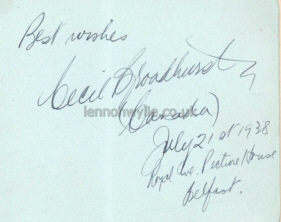 Best wishes
Cecil Broadhurst
lennonwylie.co.uk
(Canada)
July 21st 1938
Royal Ave. Picture House
Belfast.